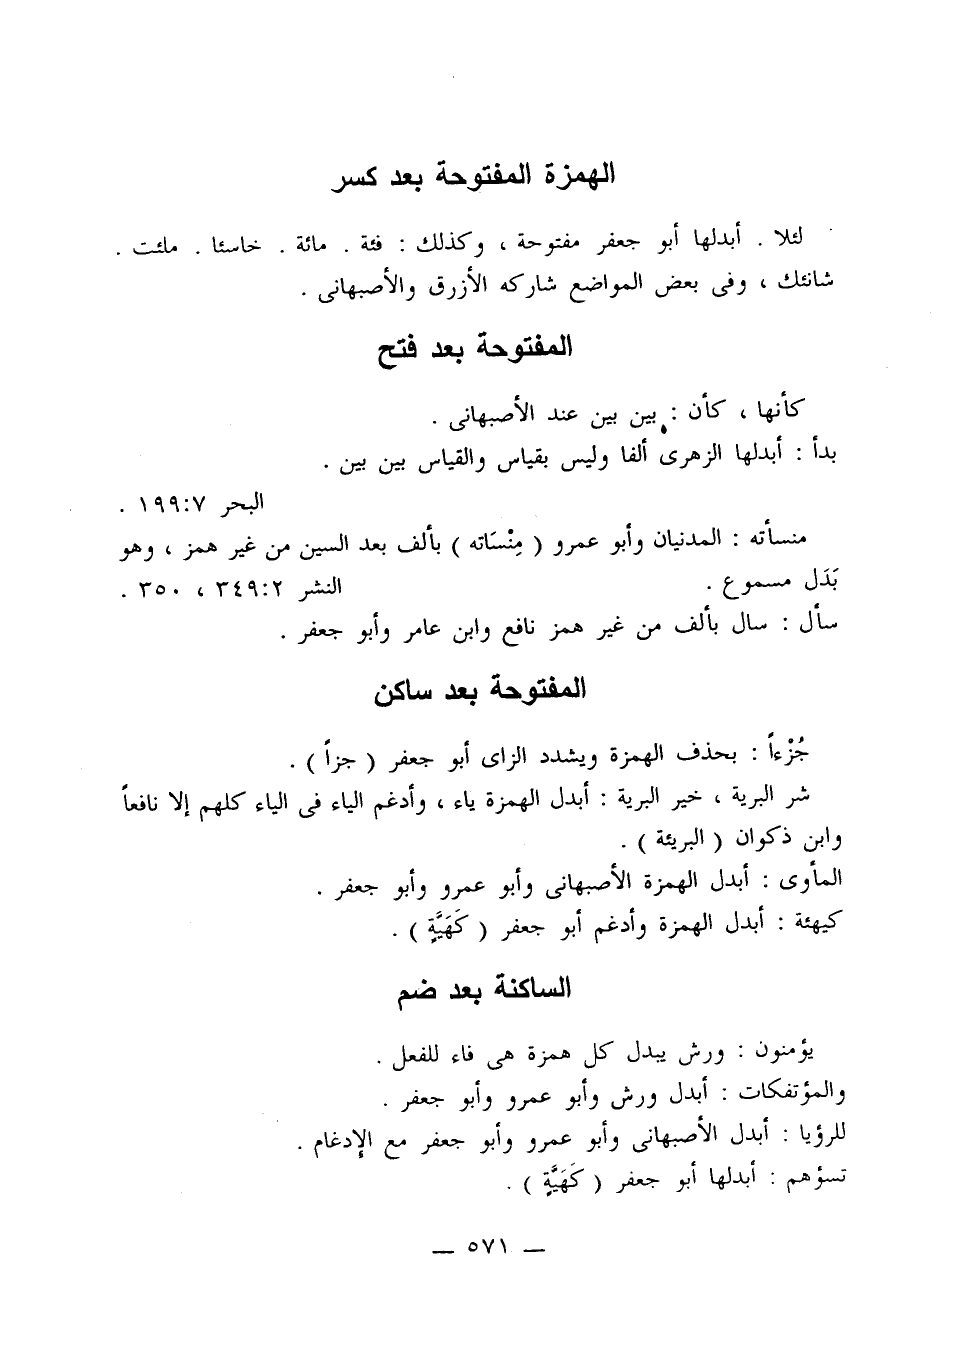 الهمزة المفتوحة بعد كسر
لئلا . أبدلها أبو جعفر مفتوحة ، وكذلك : فئة . مائة . خاسئا . ملئت .
شانئك ، وفى بعض المواضع شاركه الأزرق والأصبهانى .
المفتوحة بعد فتح
كأنها ، كأن : بين بين عند الأصبهانى .
بدأ : أبدلها الزهرى ألفا وليس بقياس والقياس بين بين .
البحر ١٩٩:٧ .
منسأته : المدنيان وأبو عمرو ( مِنْسَاته ) بألف بعد السين من غير همز ، وهو
بَدَل مسموع . النشر ٣٤٩:٢ ، ٣٥٠ .
سأل : سال بألف من غير همز نافع وابن عامر وأبو جعفر .
المفتوحة بعد ساكن
جُزْءاً : بحذف الهمزة ويشدد الزاى أبو جعفر ( جزاً ) .
شر البرية ، خير البرية : أبدل الهمزة ياء ، وأدغم الياء فى الياء كلهم إلا نافعاً
وابن ذكوان ( البريئة ) .
المأوى : أبدل الهمزة الأصبهانى وأبو عمرو وأبو جعفر .
كهيئة : أبدل الهمزة وأدغم أبو جعفر ( كَهَيَّةٍ ) .
الساكنة بعد ضم
يؤمنون : ورش يبدل كل همزة هى فاء للفعل .
والمؤتفكات : أبدل ورش وأبو عمرو وأبو جعفر .
للرؤيا : أبدل الأصبهانى وأبو عمرو وأبو جعفر مع الإدغام .
تسؤهم : أبدلها أبو جعفر ( كَهَيَّةٍ ) .
— ٥٧١ —